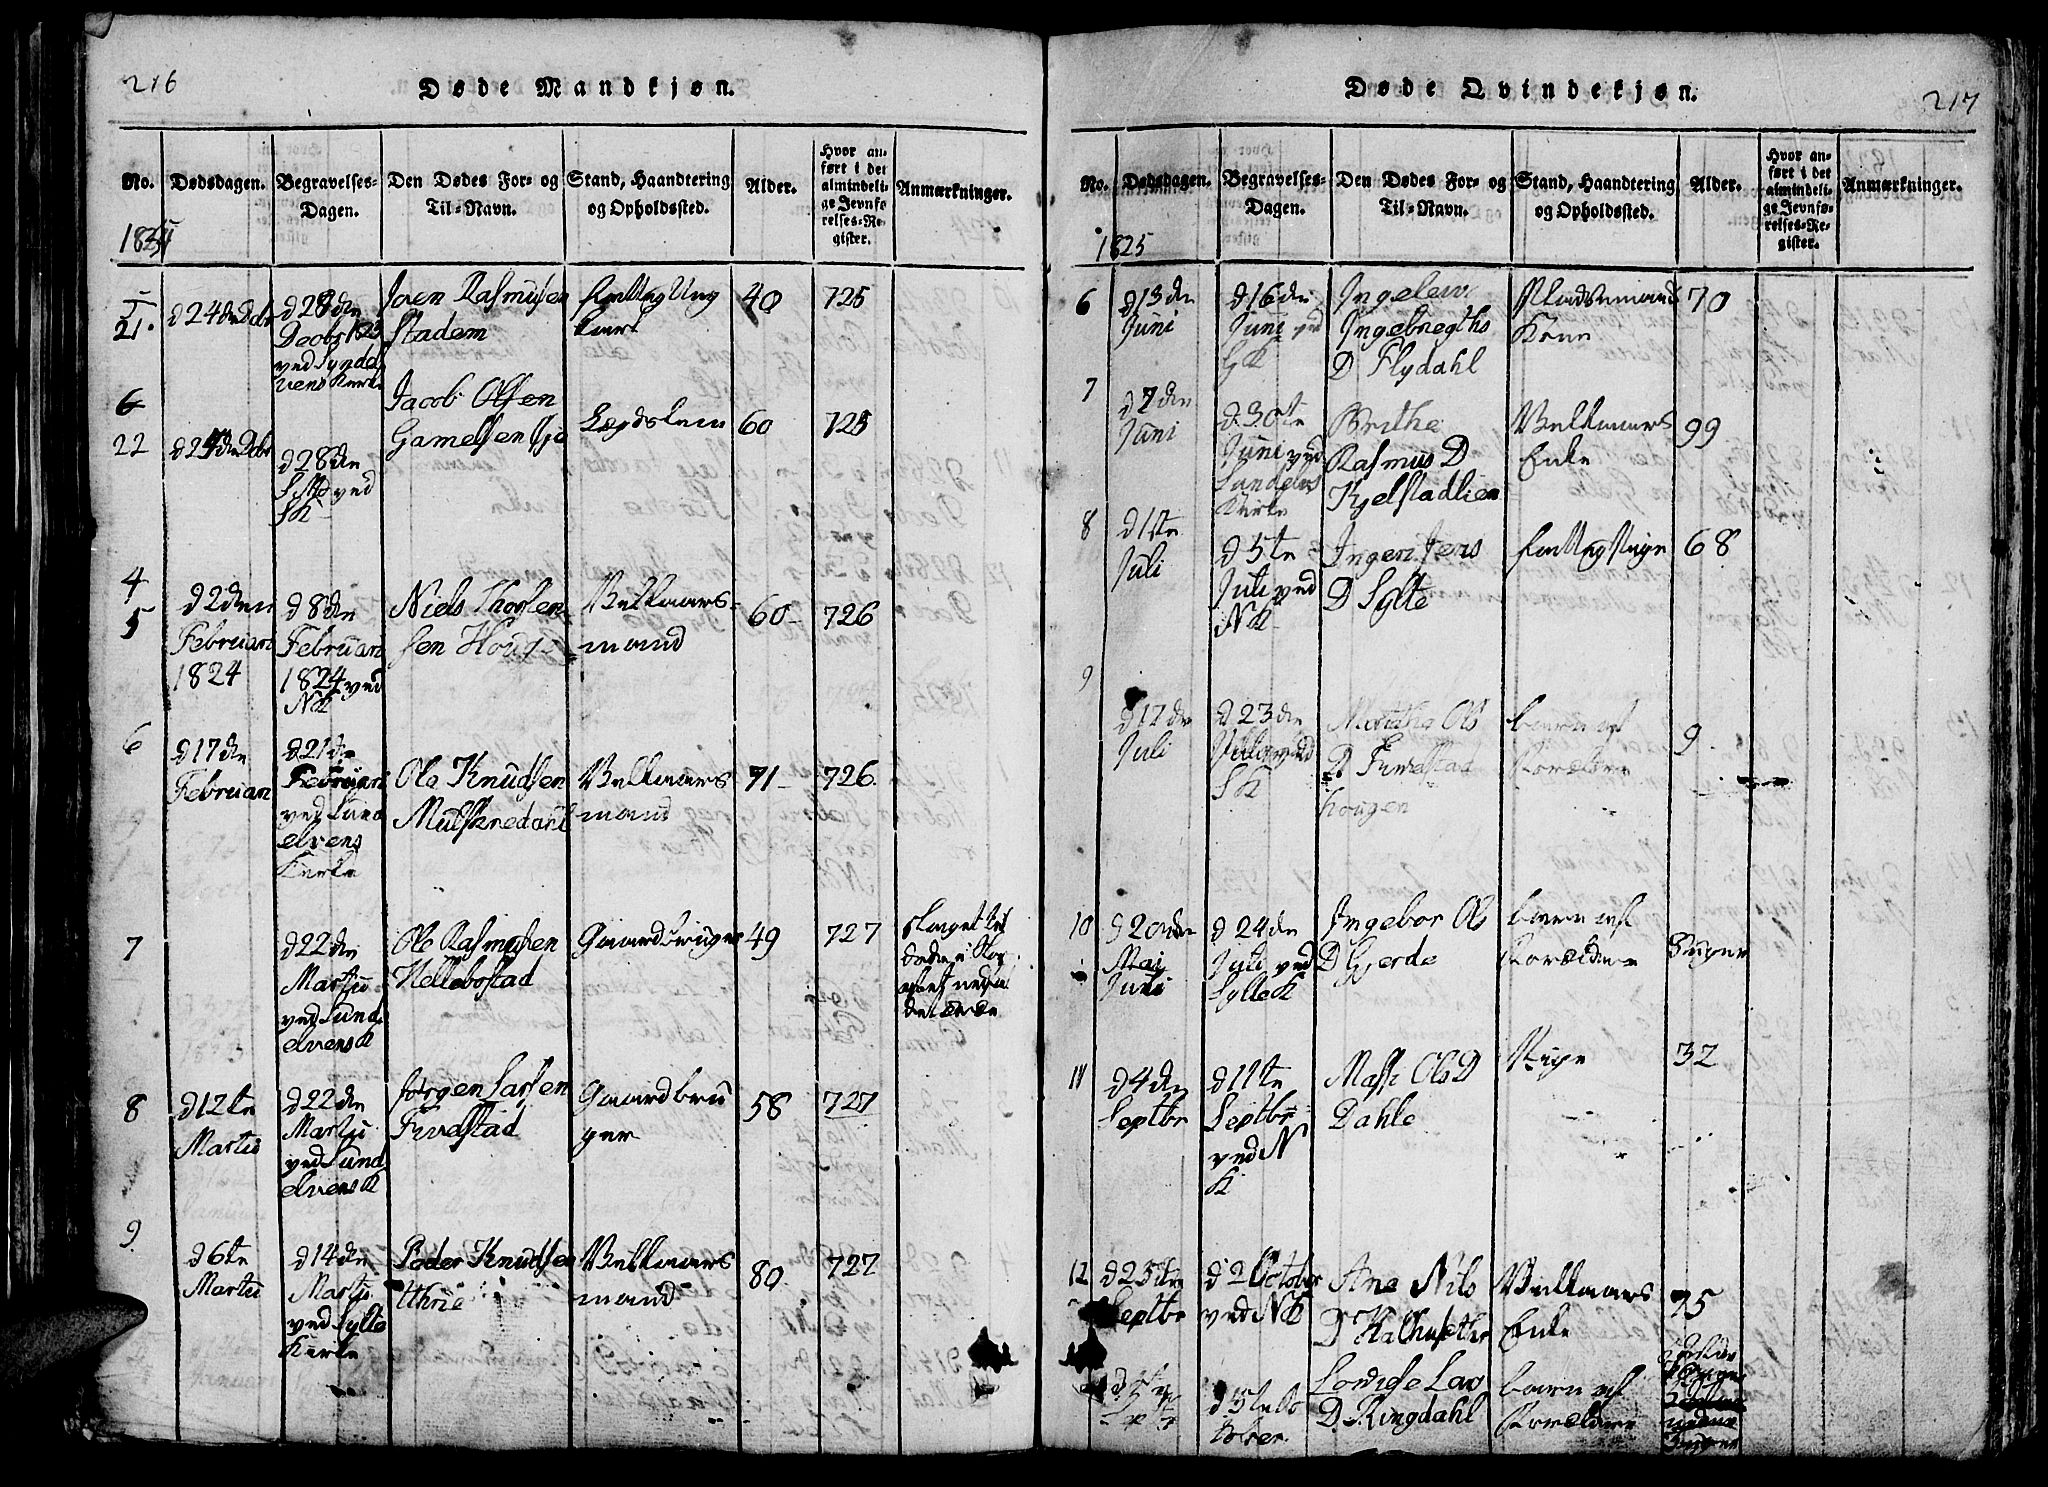 216
Døde Mandkjøn.
No.
Dødsdagen.
Begravelses-
Dagen.
Den Dødes For- og
Til-Navn.
Stand, Haandtering
og Opholdssted.
Alder.
Hvor an-
ført i det
almindeli-
ge Jevnfø-
relses-Re-
gister.
Anmærkninger.
21
d 24de Dcbr
d 28de
Decbr 1823
ved Syndel
vens Kirke
Joen Rasmusen
Stadem
40
725
6
22
d 28de
ved
SK
Jacob Olssen
Gamelsen
Lægdslem
60
725
4
5
d 2den
Februari
1824
d 8de
Februari
1824 ved
NK
Niels Thorsen
sen Houg
Velkaars-
mand
60
726
6
d 17de
Februari
d 21de
Februari
ved Sund
elvens
Kirke
Ole Knudsen
Mulskredahl
Velkaars
mand
71
726.
7
d 22de
Martii
ved Sund
elvens K
Ole Rasmusen
Hellebostad
Gaardbruger
49
727
8
d 12te
Martii
d 22de
Martii
ved Sund
elvens K
Jørgen Larsen
Furstad
Gaardbru
ger
58
727
9.
d 6te
Martii
d 14de
Martii
ved Sylte
Kirke
Peder Knudsen
Uthrie
Velkaars
mand
80
727
217
Døde Qvindekjøn.
No.
Dødsdagen.
Begravelses-
Dagen.
Den Dødes For- og
Til-Navn.
Stand, Haandtering
og Opholdssted.
Alder.
Hvor an-
ført i det
almindeli-
ge Jevnfø-
relses-Re-
gister.
Anmærkninger.
1825
6
d 13de
Juni
d 16de
Juni ved
SK
Ingelev
Ingebregths
D Flydahl
Pladsmands
Kone
70
7
d 7de
Juni
d 30te
Juni ved
Sundelvs
Kirke
Brithe
Rasmus D
Kjelstadlien
Velkaars
Enke
99
8
d 1ste
Juli
d 5te
Juli ved
NK
Ingeri Jens
D Sylte
68
9
d 17de
Juli
d 23de
Juli ved
SK
Marthe Ols
D Furstad
hougen
barn af
Forældre
9
10
d 20de
Mai
Juni
d 24de
Juli ved
Sylte K
Ingebor Ols
D Gjerde
barn af
Forældre
11
d 4de
Septbr
d 11te
Septbr
ved N
K
Massi Ols D
Dahle
Pige
32
12
d 25de
Septbr
d 2 October
ved NK
Ane Nils
D Kalhusetter
Velkaars
Enke
75
d 5te
tober.
Lovise Lar
D. Ringdahl
barn af
Forældre